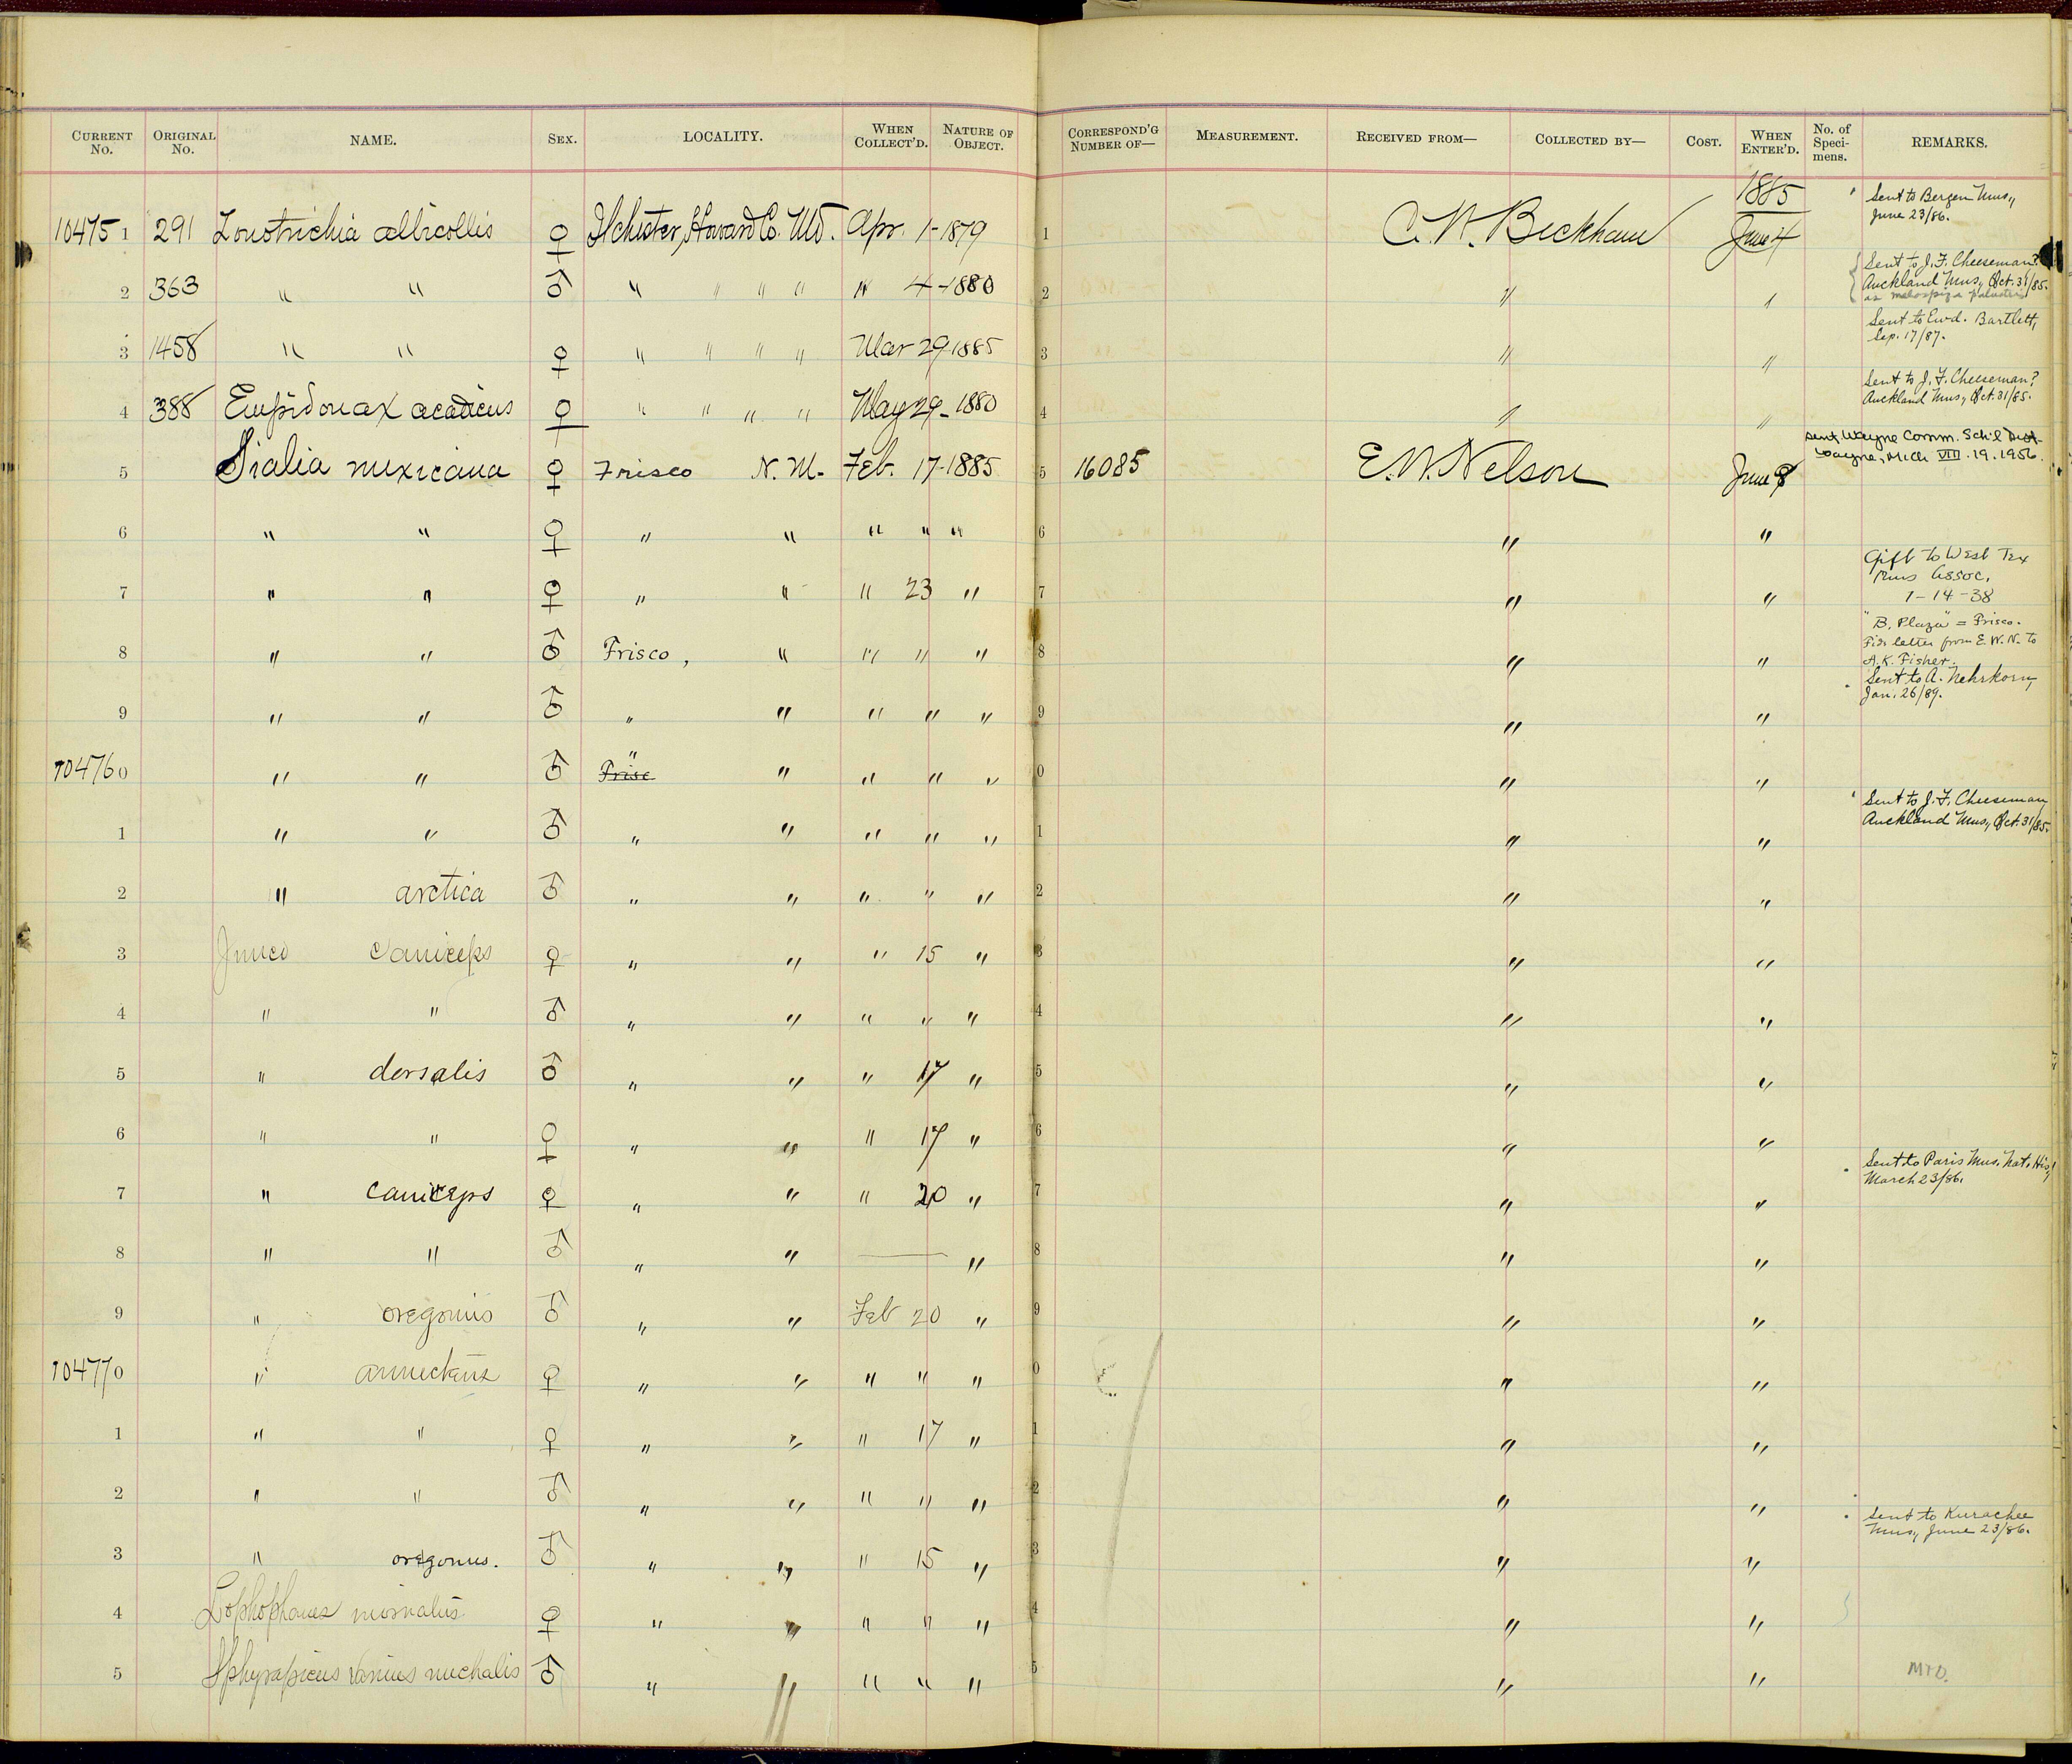 CURRENT No. ORIGINAL No. NAME. SEX. LOCALITY. WHEN COLLECT'D. NATURE OF OBJECT. CORRESPOND'G NUMBER OF— MEASUREMENT. RECEIVED FROM— COLLECTED BY— COST. WHEN ENTER'D. No. of Specimens. REMARKS.
1885
10475 1 291 Zonotrichia albicollis ♀ Ilchester, Howard Co. Md. Apr. 1-1879 1 C. W. Beckham June 4 Sent to Bergen Mus., June 23/86.
2 363 " " ♂ " " " " " 4-1880 2 " " Sent to J. F. Cheeseman? Auckland Mus., Oct. 31/85. as melospiza palustris
3 1458 " " ♀ " " " " Mar 29-1885 3 " " Sent to Ewd. Bartlett, Sep. 17/87.
4 388 Empidonax acadicus ♀ " " " " May 29-1880 4 " " Sent to J. F. Cheeseman? Auckland Mus., Oct. 31/85.
5 Sialia mexicana ♀ Frisco N. M. Feb. 17-1885 5 16085 E. W. Nelson June 8 sent Wayne Comm. Sch'l Dist. Wayne, Mich VIII. 19. 1956.
6 " " ♀ " " " " " 6 " "
7 " " ♀ " " " 23 " 7 " " Gift to West Tex Mus Assoc. 1-14-38
8 " " ♂ Frisco, " " " " 8 " " "B. Plaza" = Frisco. Fide letter from E. W. N. to A. K. Fisher.
9 " " ♂ " " " " " 9 " " Sent to A. Nehrkorn, Jan. 26/89.
10476 0 " " ♂ Frisc " " " " " 0 " "
1 " " ♂ " " " " " 1 " " Sent to J. F. Cheeseman, Auckland Mus., Oct. 31/85.
2 " arctica ♂ " " " " " 2 " "
3 Junco caniceps ♀ " " " 15 " 3 " "
4 " " ♂ " " " " " 4 " "
5 " dorsalis ♂ " " " 17 " 5 " "
6 " " ♀ " " " 17 " 6 " "
7 " caniceps ♀ " " " 20 " 7 " " Sent to Paris Mus. Nat. His., March 23/86.
8 " " ♂ " " — " 8 " "
9 " oregonus ♂ " " Feb 20 " 9 " "
10477 0 " annectens ♀ " " " " " 0 " "
1 " " ♀ " " " 17 " 1 " "
2 " " ♂ " " " " " 2 " "
3 " oregonus. ♂ " " " 15 " 3 " " Sent to Kurachee Mus., June 23/86.
4 Lophophanes inornatus ♀ " " " " " 4 " "
5 Sphyrapicus varius nuchalis ♂ " " " " " 5 " " MTD.